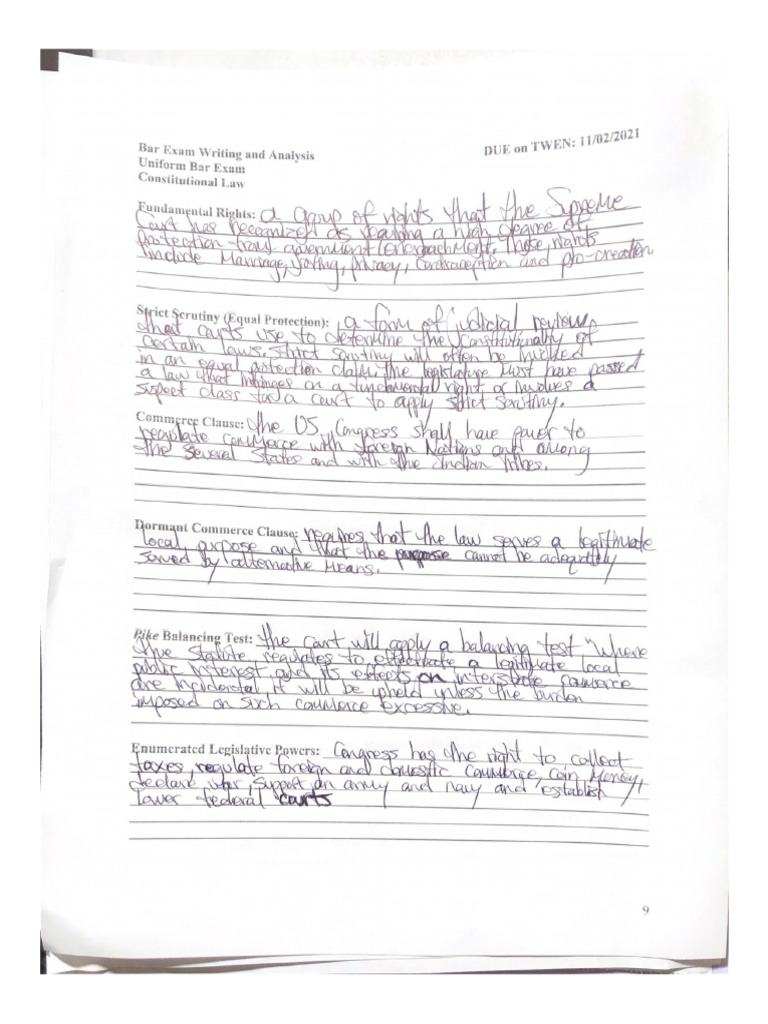 Bar Exam Writing and Analysis
DUE on TWEN: 11/02/2021
Uniform Bar Exam
Constitutional Law
Fundamental Rights: a group of rights that the Supreme
Court has recognized as requiring a high degree of
protection from government encroachment. Those rights
include Marriage, voting, privacy, contraception and pro-creation
Strict Scrutiny (Equal Protection): a form of judicial review
that courts use to determine the constitutionality of
certain laws. Strict scrutiny will often be invoked
in an equal protection claim. The legislature must have passed
a law that infringes on a fundamental right or involves a
suspect class for a court to apply strict scrutiny.
Commerce Clause: The US Congress shall have power to
regulate commerce with foreign Nations and among
the several States and with the Indian tribes.
Dormant Commerce Clause: requires that the law serves a legitimate
local purpose and that the purpose cannot be adequately
served by alternative means.
Pike Balancing Test: The court will apply a balancing test "Where
the statute regulates to effectuate a legitimate local
public interest and its effects on interstate commerce
are incidental, it will be upheld unless the burden
imposed on such commerce excessive.
Enumerated Legislative Powers: Congress has the right to collect
taxes, regulate foreign and domestic commerce, coin money,
declare war, support an army and navy and establish
lower federal courts
9